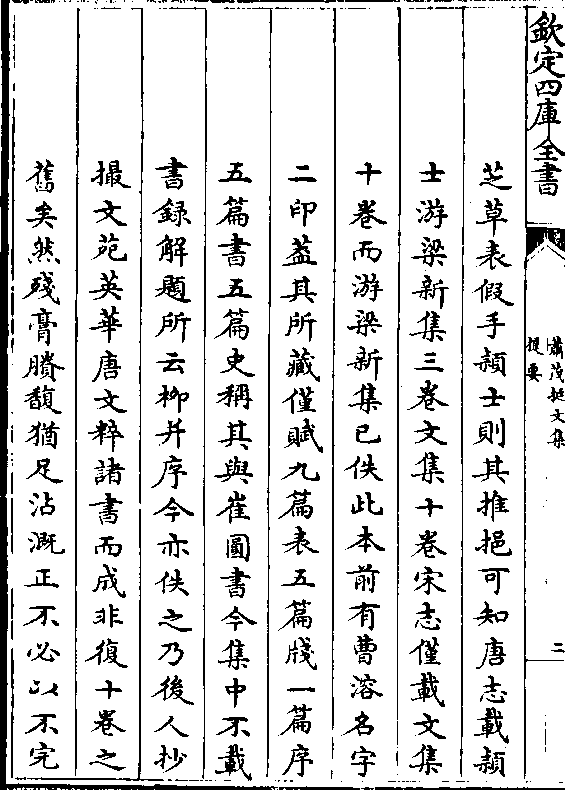 欽定四庫全書
蕭茂挺文集
提要
二
芝草表假手頴士則其推挹可知唐志載頴
士游梁新集三卷文集十卷宋志僅載文集
十卷而游梁新集已佚此本前有曹溶名字
二印葢其所藏僅賦九篇表五篇牋一篇序
五篇書五篇史稱其與崔圓書今集中不載
書録解題所云柳并序今亦佚之乃後人抄
撮文苑英華唐文粹諸書而成非復十卷之
舊矣然殘膏賸馥猶足沾溉正不必以不完